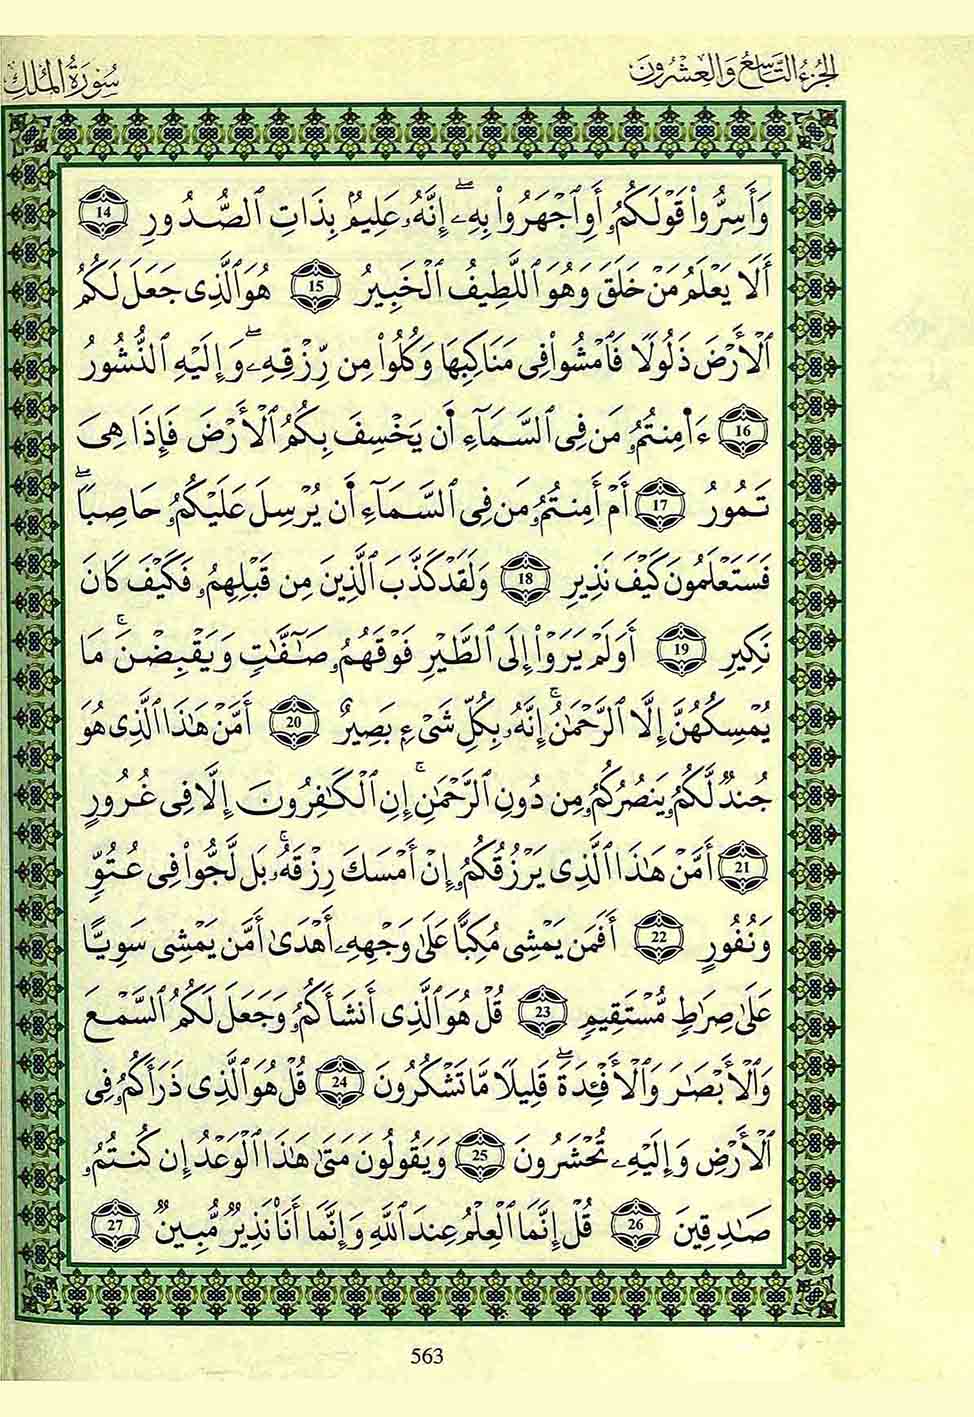 الجزء التاسع والعشرون
سورة الملك
وَأَسِرُّوا۟ قَوْلَكُمُۥٓ أَوِ ٱجْهَرُوا۟ بِهِۦٓۖ إِنَّهُۥ عَلِيمُۢ بِذَاتِ ٱلصُّدُورِ 14
أَلَا يَعْلَمُ مَنْ خَلَقَ وَهُوَ ٱللَّطِيفُ ٱلْخَبِيرُ 15 هُوَ ٱلَّذِى جَعَلَ لَكُمُ
ٱلْأَرْضَ ذَلُولًا فَٱمْشُوا۟ فِى مَنَاكِبِهَا وَكُلُوا۟ مِن رِّزْقِهِۦۖ وَإِلَيْهِ ٱلنُّشُورُ
16 ءَا۬مِنتُمُۥ مَن فِى ٱلسَّمَآءِ أَن يَخْسِفَ بِكُمُ ٱلْأَرْضَ فَإِذَا هِىَ
تَمُورُ 17 أَمْ أَمِنتُمُۥ مَن فِى ٱلسَّمَآءِ أَن يُرْسِلَ عَلَيْكُمُۥ حَاصِبًاۖ
فَسَتَعْلَمُونَ كَيْفَ نَذِيرِ 18 وَلَقَدْ كَذَّبَ ٱلَّذِينَ مِن قَبْلِهِمُۥ فَكَيْفَ كَانَ
نَكِيرِ 19 أَوَلَمْ يَرَوْا۟ إِلَى ٱلطَّيْرِ فَوْقَهُمُۥ صَـٰٓفَّـٰتٍ وَيَقْبِضْنَۚ مَا
يُمْسِكُهُنَّ إِلَّا ٱلرَّحْمَـٰنُۚ إِنَّهُۥ بِكُلِّ شَىْءٍ بَصِيرٌ 20 أَمَّنْ هَـٰذَا ٱلَّذِى هُوَ
جُندٌ لَّكُمُۥ يَنصُرُكُمُۥ مِن دُونِ ٱلرَّحْمَـٰنِۚ إِنِ ٱلْكَـٰفِرُونَ إِلَّا فِى غُرُورٍ
21 أَمَّنْ هَـٰذَا ٱلَّذِى يَرْزُقُكُمُۥٓ إِنْ أَمْسَكَ رِزْقَهُۥۚ بَل لَّجُّوا۟ فِى عُتُوٍّ
وَنُفُورٍ 22 أَفَمَن يَمْشِى مُكِبًّا عَلَىٰ وَجْهِهِۦٓ أَهْدَىٰٓ أَمَّن يَمْشِى سَوِيًّا
عَلَىٰ صِرَٰطٍ مُّسْتَقِيمٍ 23 قُلْ هُوَ ٱلَّذِىٓ أَنشَأَكُمُۥ وَجَعَلَ لَكُمُ ٱلسَّمْعَ
وَٱلْأَبْصَـٰرَ وَٱلْأَفْـِٔدَةَۖ قَلِيلًا مَّا تَشْكُرُونَ 24 قُلْ هُوَ ٱلَّذِى ذَرَأَكُمُۥ فِى
ٱلْأَرْضِ وَإِلَيْهِۦ تُحْشَرُونَ 25 وَيَقُولُونَ مَتَىٰ هَـٰذَا ٱلْوَعْدُ إِن كُنتُمُۥ
صَـٰدِقِينَ 26 قُلْ إِنَّمَا ٱلْعِلْمُ عِندَ ٱللَّهِ وَإِنَّمَآ أَنَا۠ نَذِيرٌ مُّبِينٌ 27
563